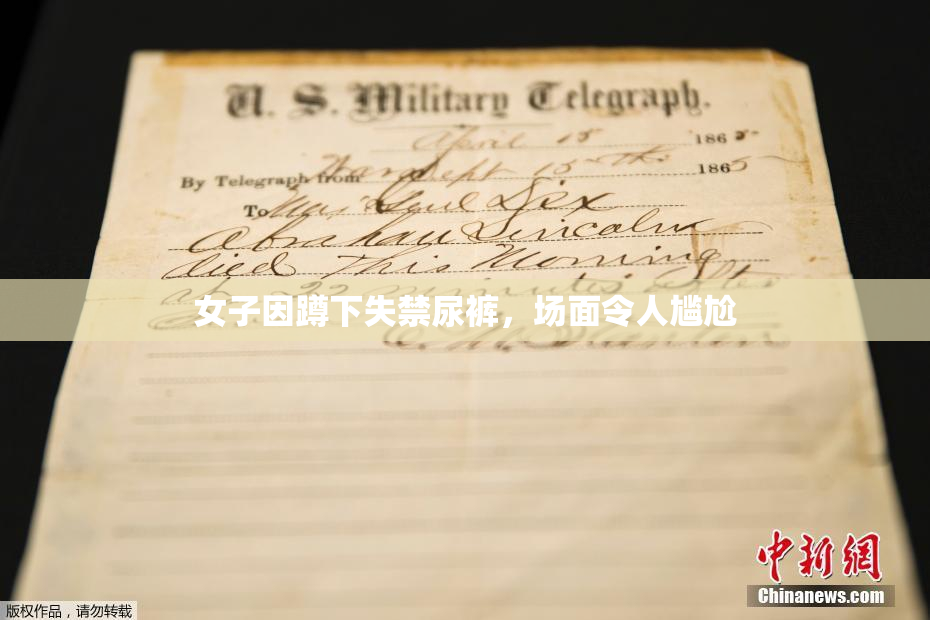 U. S. Military Telegraph.
April 15 1865
By Telegraph from War Dept 15th 1865
To Maj Genl Dix
Abraham Lincoln
died This Morning
at 22 minutes after
女子因蹲下失禁尿裤，场面令人尴尬
E. M. Stanton
中新网
Chinanews.com
版权作品，请勿转载